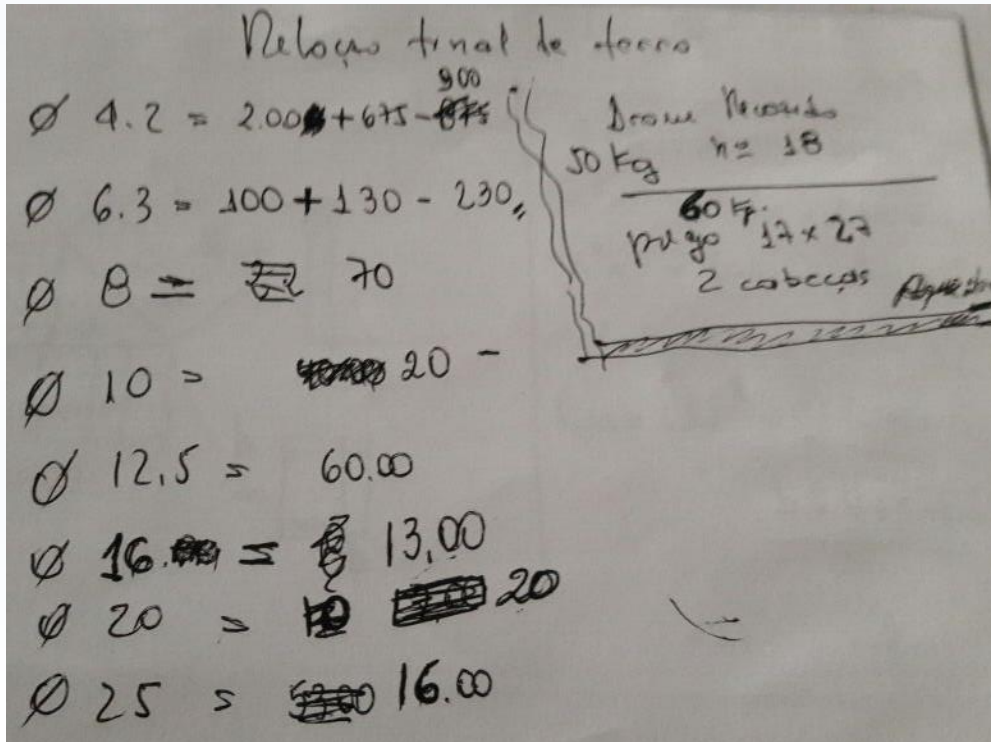 Relação final de ferro
900
Ø 4.2 = 2.00 + 675 -
Ø 6.3 = 100 + 130 - 230,,
Ø 8 = 70
Ø 10 = 20 -
Ø 12,5 = 60.00
Ø 16. = 13,00
Ø 20 = 20
Ø 25 = 16.00
Arame Recozido
50 Kg nº 18
60 Kg.
prego 17 x 27
2 cabeças